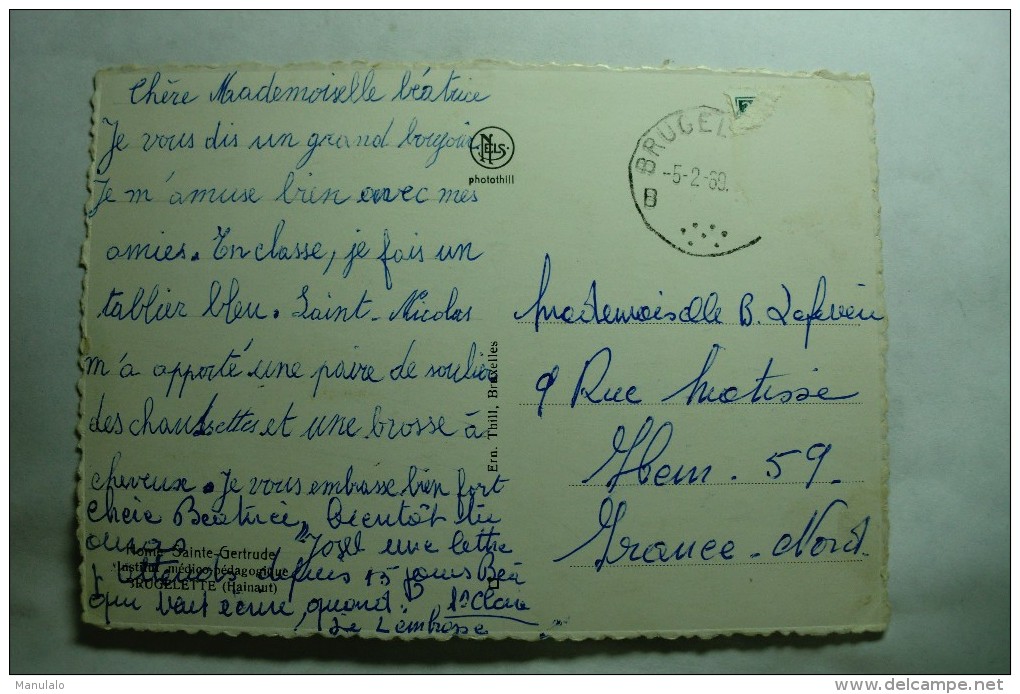 Chère Mademoiselle béatrice
Je vous dis un grand boujour
Je m'amuse bien avec mes
amies. En classe, je fais un
tablier bleu. Saint-Nicolas
m'a apporté une paire de soulier
des chaussettes et une brosse à
cheveux. Je vous embrasse bien fort
chère Béatrice, bientôt tu
auras une lettre
depuis 15 jours
qui veut écrire, quand. Sr Claire
Je t'embrasse
Home Sainte-Gertrude
Institut médico-pédagogique
BRUGELETTE (Hainaut)
NELS
photothill
Ern. Thill, Bruxelles
B BRUGEL
-5-2-69.
Mademoiselle B. Lefevere
9 Rue Matisse
Hem. 59.
France-Nord.
Manulalo
www.delcampe.net